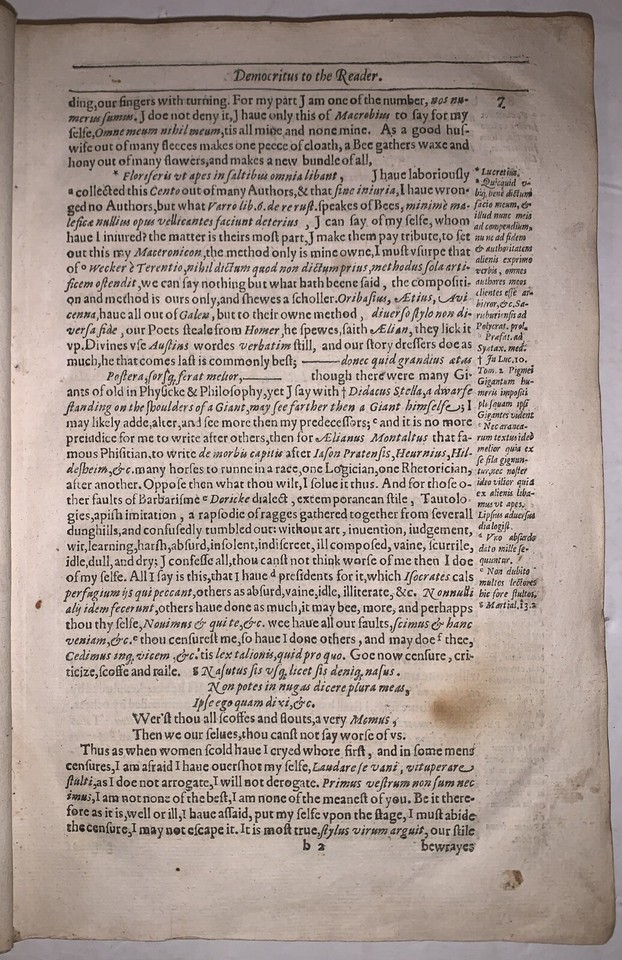 Democritus to the Reader.
7
ding, our fingers with turning. For my part J am one of the number, nos nu-
merus sumus. J doe not deny it, J haue only this of Macrobius to say for my
selfe, Omne meum nihil meum, tis all mine and none mine. As a good hus-
wife out of many fleeces makes one peece of cloath, a Bee gathers waxe and
hony out of many flowers, and makes a new bundle of all,
* Floriferis vt apes in saltibus omnia libant, J haue laboriously
a collected this Cento out of many Authors, & that sine iniuria, I haue wron-
ged no Authors, but what Varro lib. 6. de re rust. speakes of Bees, minimè ma-
leficæ nullius opus vellicantes faciunt deterius, J can say of my selfe, whom
haue I iniured? the matter is theirs most part, J make them pay tribute, to set
out this my Maceronicon, the method only is mine owne, I must vsurpe that
of Wecker è Terentio, nihil dictum quod non dictum prius, methodus sola arti-
ficem ostendit, we can say nothing but what hath beene said, the compositi-
on and method is ours only, and shewes a scholler. Oribasius, Ætius, Avi
cenna, haue all out of Galen, but to their owne method, diuerso stylo non di-
versa fide, our Poets steale from Homer, he spewes, saith Ælian, they lick it
vp. Divines vse Austins wordes verbatim still, and our story dressers doe as
much, he that comes last is commonly best; ——— donec quid grandius ætas
Postera, sorsq, ferat melior, ——— though there were many Gi-
ants of old in Physicke & Philosophy, yet J say with † Didacus Stella, a dwarfe
standing on the shoulders of a Giant, may see farther then a Giant himselfe; I
may likely adde, alter, and see more then my predecessors; c and it is no more
preiudice for me to write after others, then for Ælianus Montaltus that fa-
mous Phisitian, to write de morbis capitis after Iason Pratensis, Heurnius, Hil-
desheim, &c. many horses to runne in a race, one Logician, one Rhetorician,
after another. Oppose then what thou wilt, I solue it thus. And for those o-
ther faults of Barbarisme c Doricke dialect, extemporanean stile, Tautolo-
gies, apish imitation, a rapsodie of ragges gathered together from severall
dunghills, and confusedly tumbled out: without art, inuention, iudgement,
wit, learning, harsh, absurd, insolent, indiscreet, ill composed, vaine, scurrile,
idle, dull, and dry; J confesse all, thou canst not think worse of me then I doe
of my selfe. All I say is this, that I haue d presidents for it, which Isocrates cals
perfugium ijs qui peccant, others as absurd, vaine, idle, illiterate, &c. Nonnulli
alij idem fecerunt, others haue done as much, it may bee, more, and perhapps
thou thy selfe, Nouimus & qui te, &c. wee haue all our faults, scimus & hanc
veniam, &c. e thou censurest me, so haue I done others, and may doe f thee,
Cedimus inq, vicem, &c. tis lex talionis, quid pro quo. Goe now censure, cri-
ticize, scoffe and raile. g Nasutus sis vsq, licet sis deniq, nasus.
Non potes in nugas dicere plura meas,
Ipse ego quam dixi, &c.
Wer'st thou all scoffes and flouts, a very Momus,
Then we our selues, thou canst not say worse of vs.
Thus as when women scold haue I cryed whore first, and in some mens
censures, I am afraid I haue ouershot my selfe, Laudare se vani, vituperare
stulti, as I doe not arrogate, I will not derogate. Primus vestrum non sum nec
imus, I am not none of the best, I am none of the meanest of you. Be it there-
fore as it is, well or ill, I haue assaid, put my selfe vpon the stage, I must abide
the censure, I may not escape it. It is most true, stylus virum arguit, our stile
b 2
bewrayes
* Lucretius.
a Quicquid v-
biq, bene dictum
facio meum, &
illud nunc meis
ad compendium,
nunc ad fidem
& authoritatem
alienis exprimo
verbis, omnes
authores meos
clientes esse ar-
bitror, &c. Sa-
ruburiensis ad
Polycrat. prol.
Præfat. ad
Syntax. med.
† In Luc. 10.
Tom. 2 Pigmei
Gigantum hu-
meris impositi
plusquam ipsi
Gigantes vident
c Nec aranea-
rum textus ideò
melior quia ex
se fila gignun-
tur, nec noster
ideo vilior quia
ex alienis liba-
mus vt apes.
Lipsius aduersus
dialogist.
d Vno absurdo
dato mille se-
quuntur.
e Non dubito
multos lectores
hic fore stultos.
g Martial, 13.2